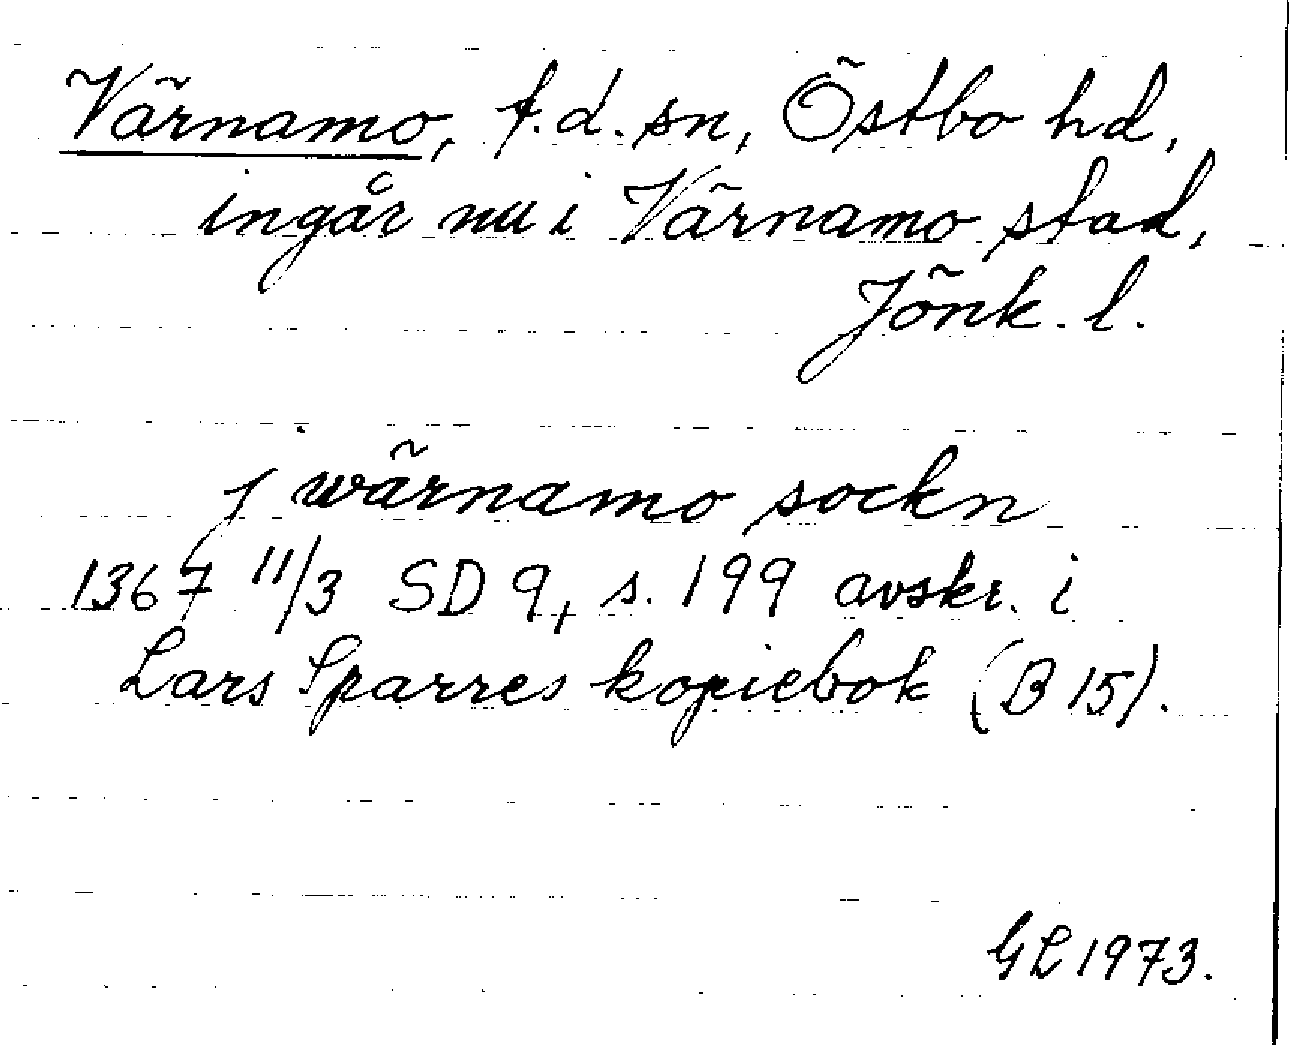 Värnamo, f.d. sn, Östbo hd,
ingår nu i Värnamo stad,
Jönk. l.
j wärnamo sockn
1367 11/3 SD 9, s. 199 avskr. i
Lars Sparres kopiebok (B 15).
GL 1973.